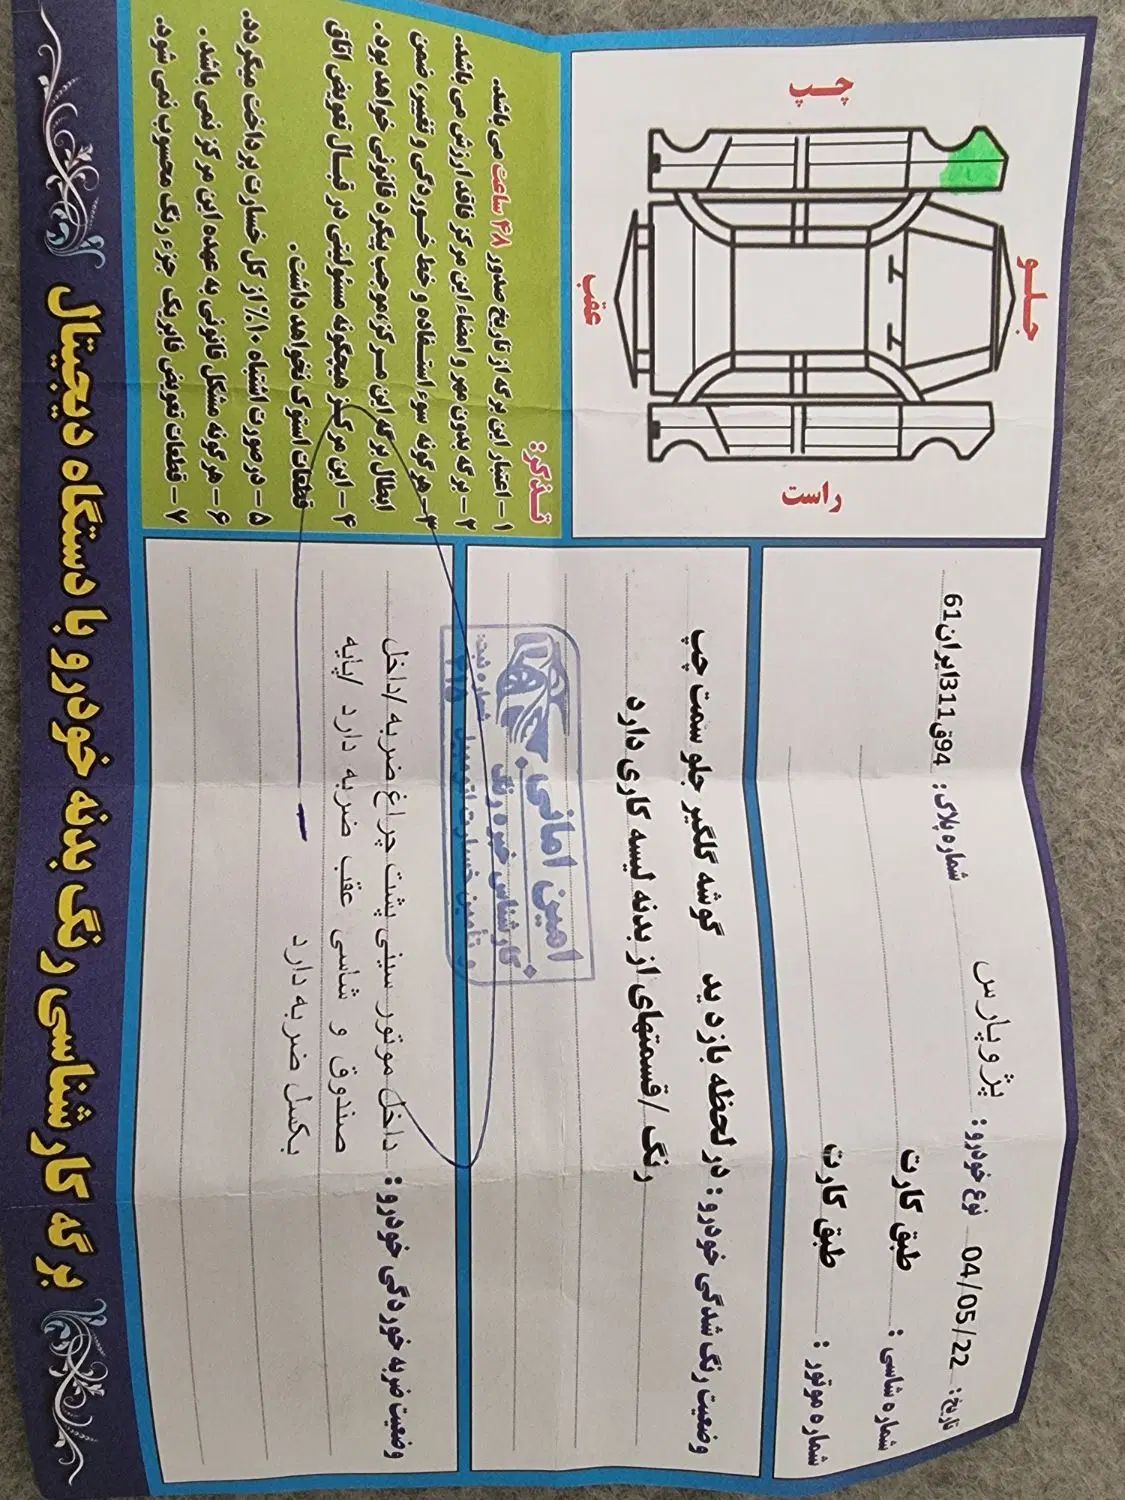 برگه کارشناسی رنگ بدنه خودرو با دستگاه دیجیتال
تاریخ: 04/05/22 نوع خودرو: پژو پارس شماره پلاک: 94ق311ایران61
شماره شاسی: طبق کارت
شماره موتور: طبق کارت
وضعیت رنگ شدگی خودرو: در لحظه بازدید گوشه گلگیر جلو سمت چپ
رنگ /قسمتهای از بدنه لیسه کاری دارد
امین امانی
کارشناس خبره رنگ
و تأمین خسارت اتومبیل
شماره ثبت:
۲۱۵
وضعیت ضربه خوردگی خودرو: داخل موتور سینی پشت چراغ ضربه /داخل
صندوق و شاسی عقب ضربه دارد /پایه
بکسل ضربه دارد
چپ
جلو
عقب
راست
تذکر:
۱ – اعتبار این برگه از تاریخ صدور ۴۸ ساعت می باشد.
۲ – برگه بدون مهر و امضاء این مرکز فاقد ارزش می باشد.
۳– هرگونه سوء استفاده و خط خوردگی و تغییر، ضمن
ابطال برگه این مرکز، موجب پیگرد قانونی خواهد بود.
۴ – این مرکز هیچگونه مسئولیتی در قبال تعویض اتاق
قطعات استوک نخواهد داشت.
۵ – در صورت اشتباه ۱۰٪ از کل خسارت پرداخت میگردد.
۶ – هرگونه مشکل قانونی به عهده این مرکز نمی باشد.
۷ – قطعات تعویض فابریک جزء رنگ محسوب نمی شود.